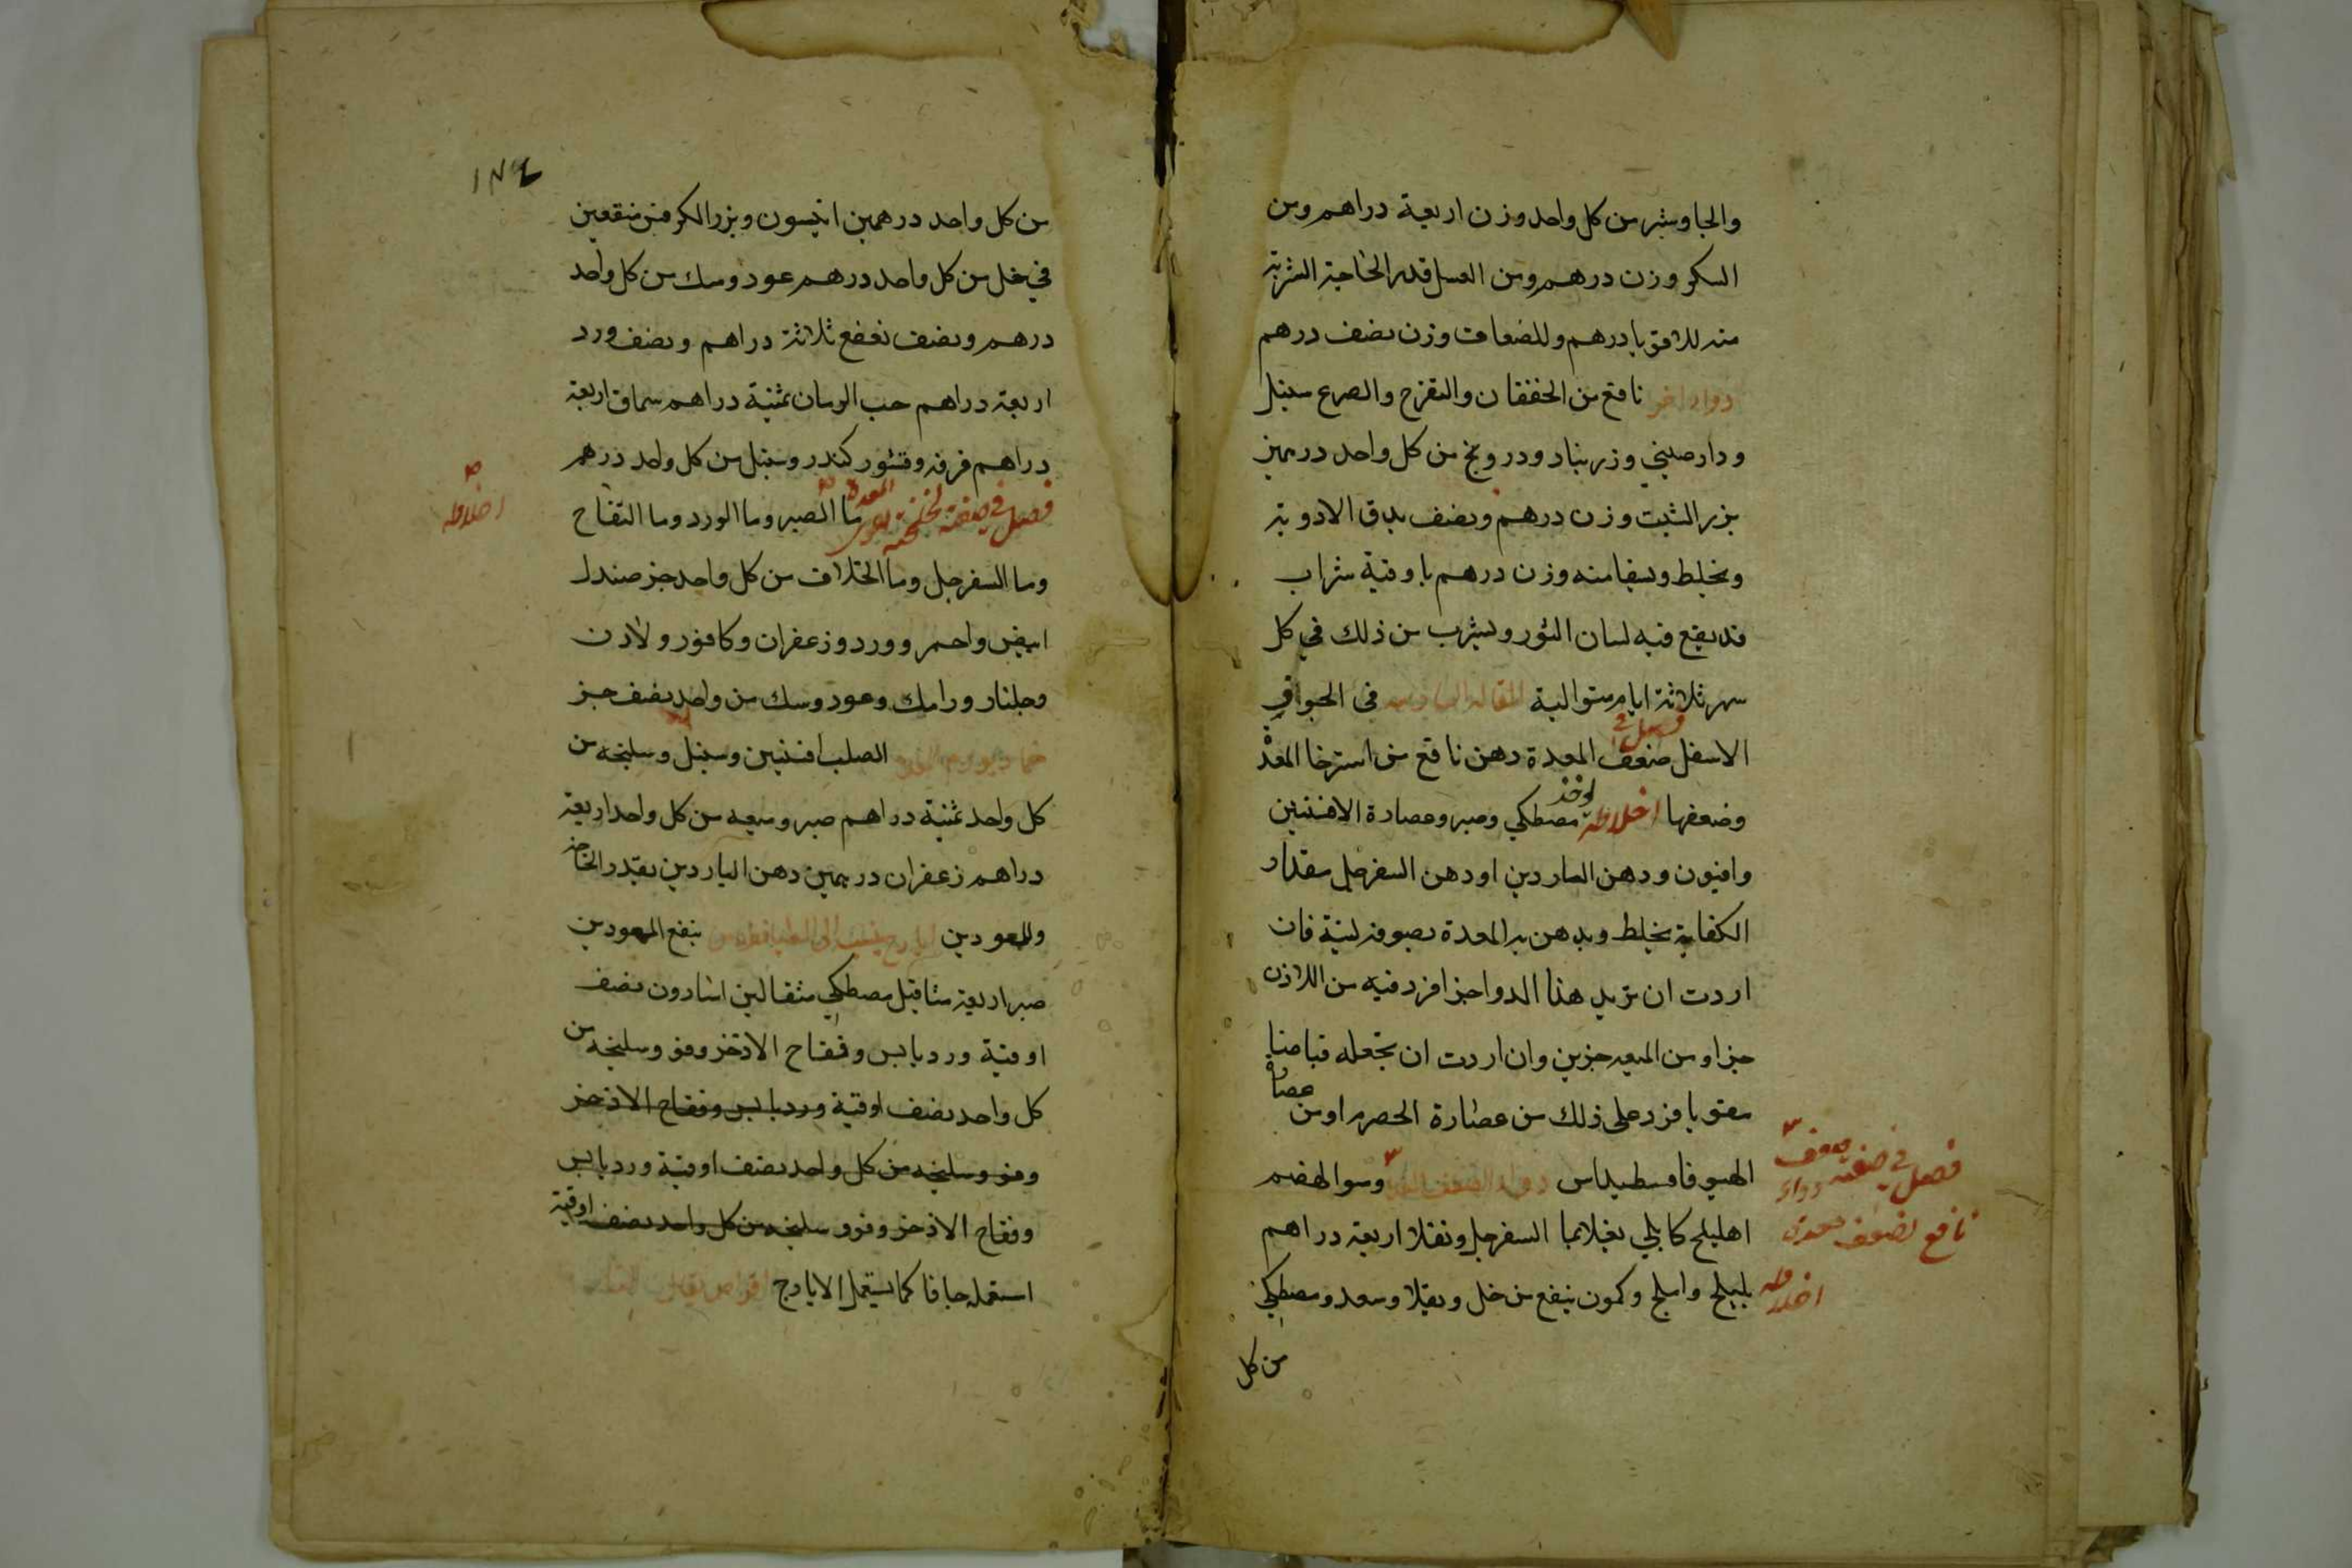 والجاوشير من كل واحد وزن اربعة دراهم ومن
السكر وزن درهم ومن العسل قدر الحاجة الشربة
منه للاقويا درهم وللضعاف وزن نصف درهم
دواء اخر نافع من الخفقان والتفزع والصرع سنبل
ودارصيني وزرنباد ودرونج من كل واحد درهمين
بزر الشبت وزن درهم ونصف يدق الادوية
ويخلط ويسقا منه وزن درهم باوقية شراب
قد ينقع فيه لسان الثور ويشرب من ذلك في كل
شهر ثلاثة ايام متوالية المقالة السادسة في الجوف
فصل في
الاسفل ضعف المعدة دهن نافع من استرخا المعدة
يوخذ
وضعفها اخلاطه مصطكي وصبر وعصارة الافسنتين
وافيون ودهن الناردين او دهن السفرجل مقدار
الكفاية يخلط ويدهن به المعدة بصوفة لينة فان
اردت ان تزيد هذا الدوا جزا فزد فيه من اللاذن
جزا ومن الميعه جزين وان اردت ان تجعله قباضا
مقويا فزد على ذلك من عصارة الحصرم او من
عصارة
الهيوفاقسطيداس دواء لضعف المعدة وسوا الهضم
فصل في صفة
ضعف دواء
نافع لضعف معدة
اهليلج كابلي يغلا بما السفرجل ونقلا اربعة دراهم
اخلاطه
بليلج واملج وكمون ينقع من خل ويقلا وسعد ومصطكي
من كل
١٨٤
من كل واحد درهمين انيسون وبزر الكرفس منقعين
في خل من كل واحد درهم عود وسك من كل واحد
درهم ونصف نعنع ثلاثة دراهم ونصف ورد
اربعة دراهم حب الرمان ثمنية دراهم سماق اربعة
دراهم قرفه وقشور كندر وسنبل من كل واحد درهم
المعدة
فصل في صفة لخلخة يقوى ما الصبر وما الورد وما التفاح
اخلاطه
وما السفرجل وما الخلاف من كل واحد جز صندل
ابيض واحمر وورد وزعفران وكافور ولاذن
وجلنار ورامك وعود وسك من واحد نصف جز
ضماد لورم المعدة الصلب افسنتين وسنبل وسليخه من
كل واحد ثمنية دراهم صبر وميعه من كل واحد اربعة
دراهم زعفران درهمين دهن الناردين بقدر الحاجة
وللمعودين ايارج ينسب الى ينفع المعودين
صبر اربعة مثاقيل مصطكي مثقالين اسارون نصف
اوقية ورد يابس وفقاح الاذخر وفو وسليخه من
كل واحد نصف اوقية ورد يابس وفقاح الاذخر
وفو وسليخه من كل واحد نصف اوقية ورد يابس
وفقاح الاذخر وفو و سليخه من كل واحد نصف اوقية
استعمله جافا كما يستعمل الايارج اقراص